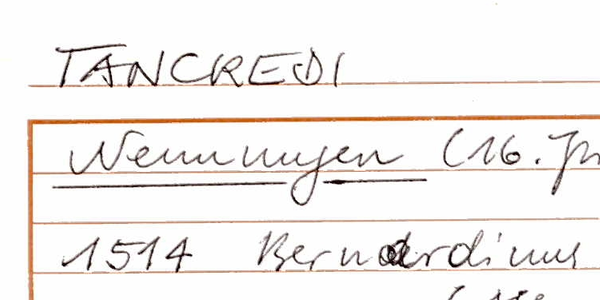 TANCREDI
Nennungen (16. Jh
1514 Bernardinus